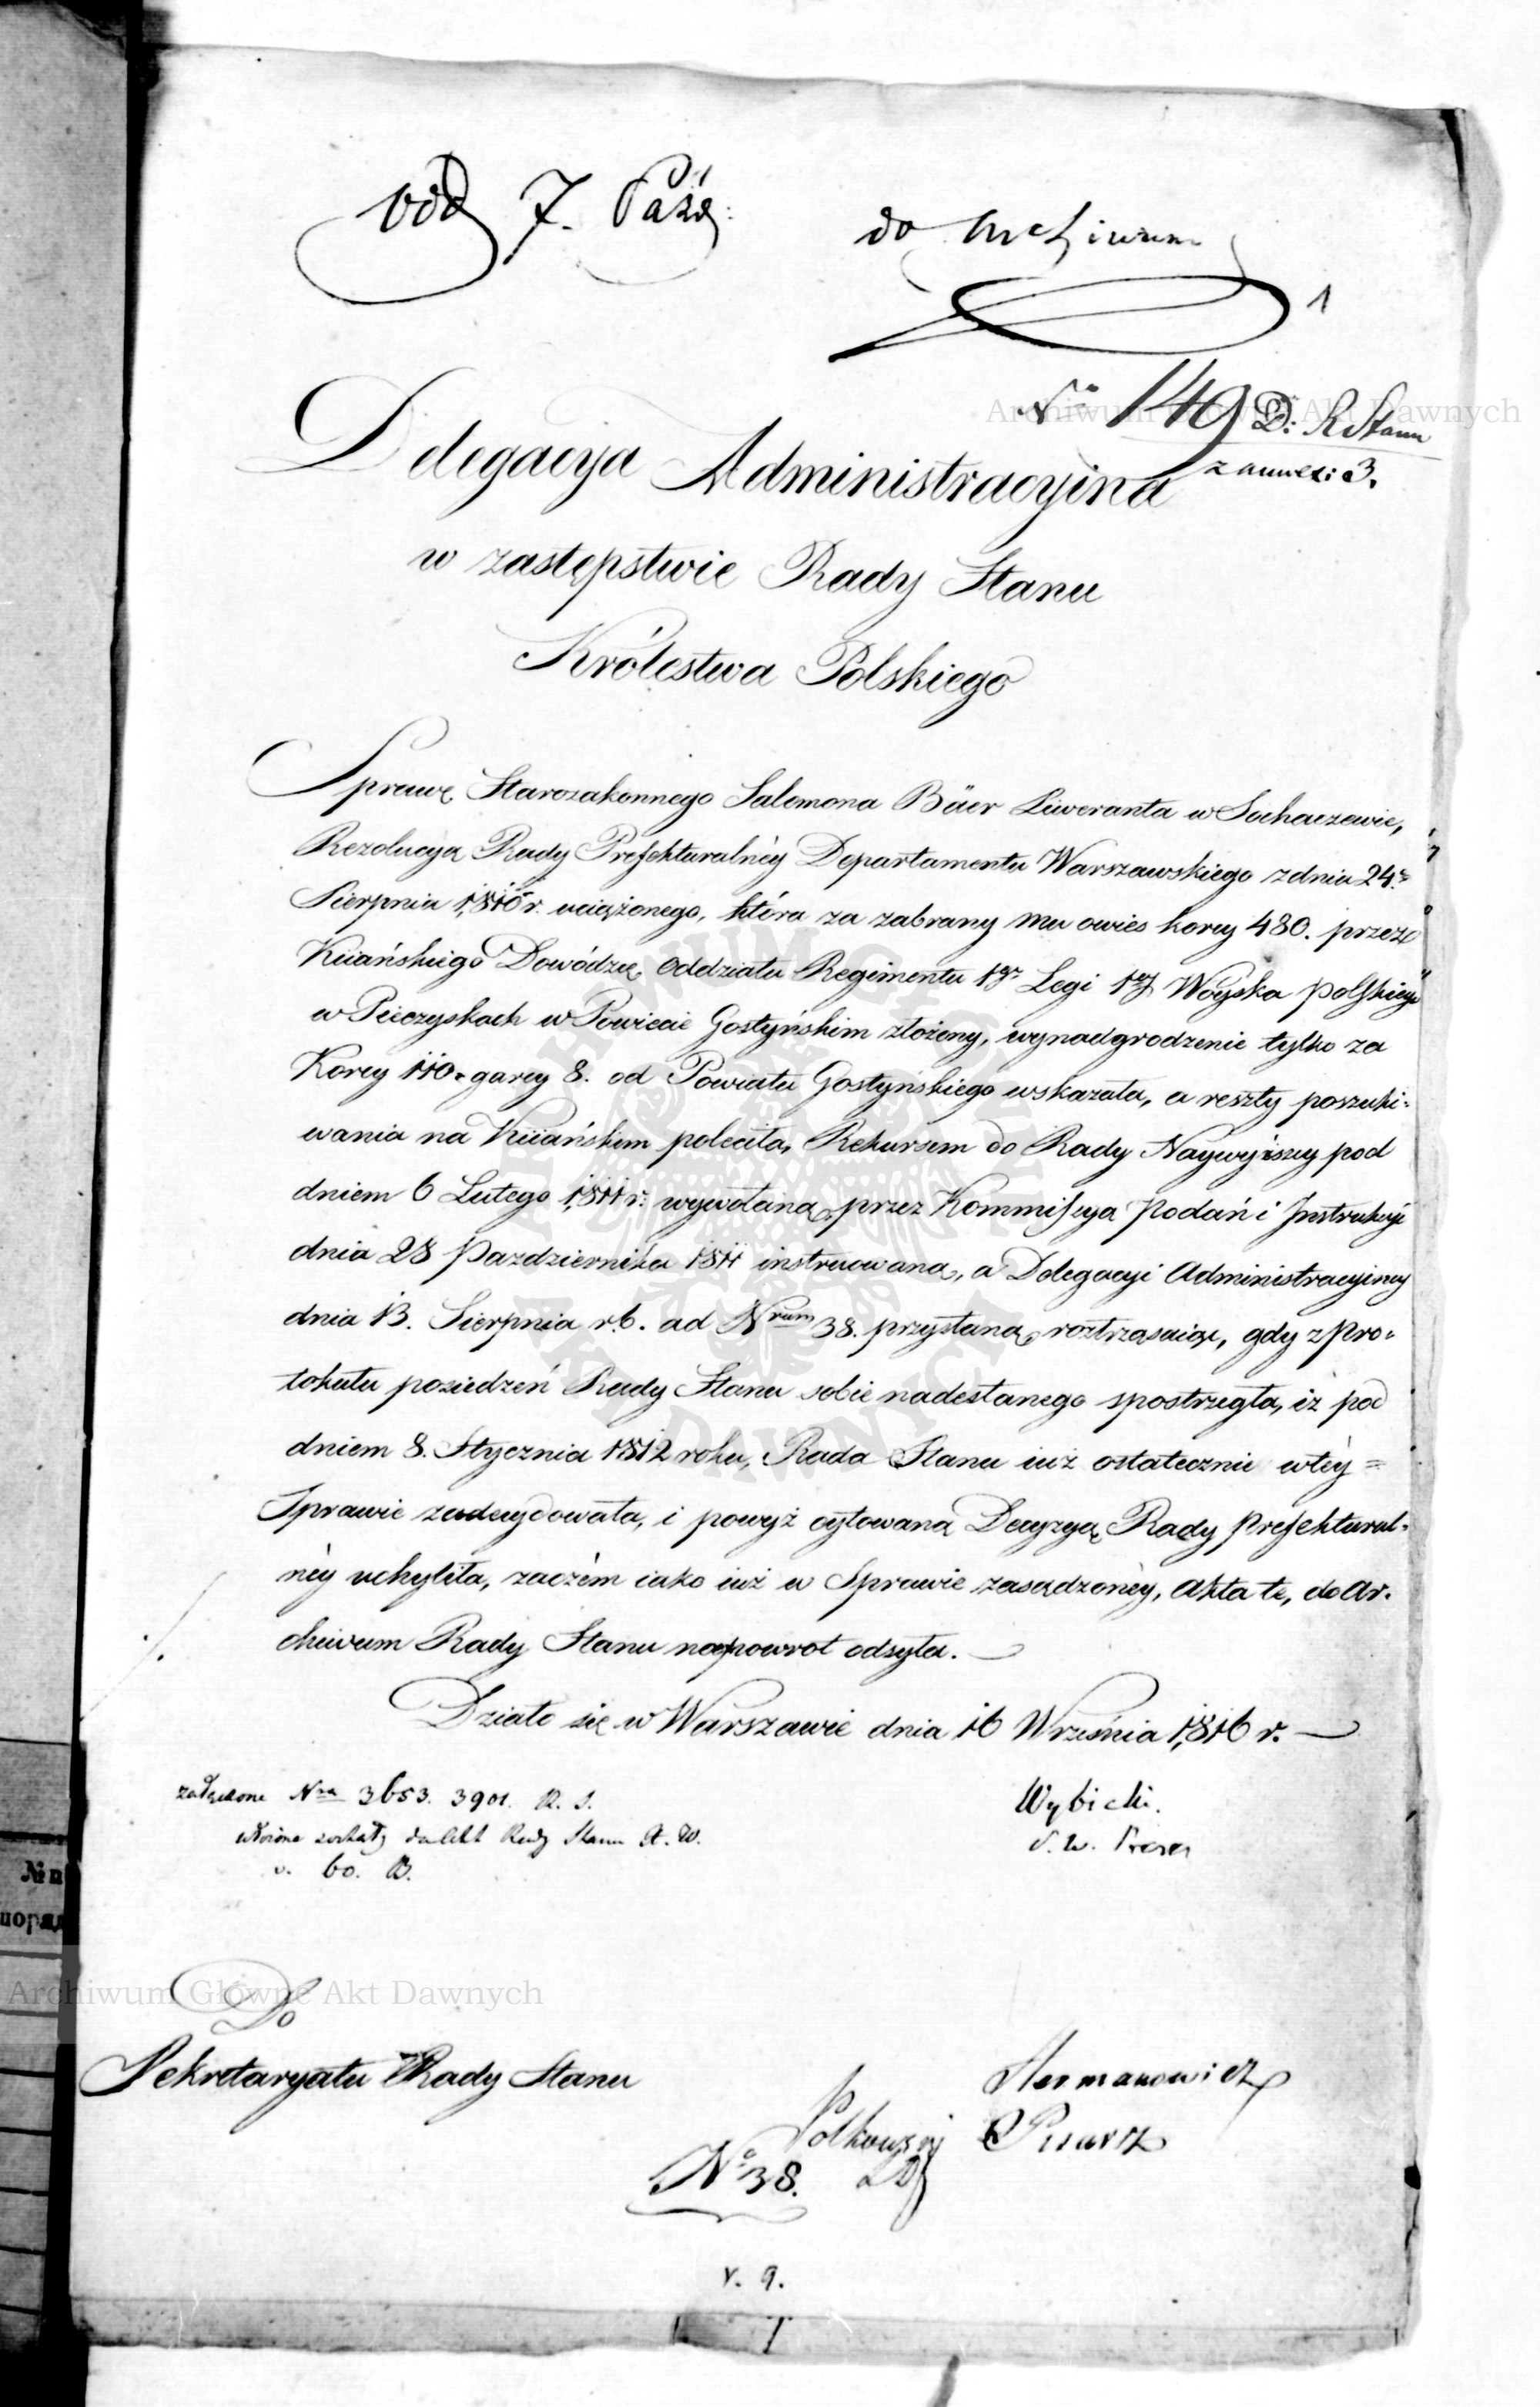 odd 7. Paźd:
do Archiwum
1
No 149 D: R Stanu
z annexi: 3.
Delegacya Administracyina
w zastępstwie Rady Stanu
Królestwa Polskiego
Sprawę Starozakonnego Salomona Bäer Liweranta w Sochaczewie,
Rezolucyą Rady Prefekturalnéy Departamentu Warszawskiego z dnia 24.
Sierpnia 1810 r. uciążonego, która za zabrany mu owies korcy 480. przez
Kiiańskiego Dowódzcę Oddziału Regimentu 1go Legi 1éy Woyska Polskiego
w Pieczyskach w Powiecie Gostyńskim złożony, wynadgrodzenie tylko za
Korcy 110. garcy 8. od Powiatu Gostyńskiego wskazała, a reszty poszuki-
wania na Kiiańskim poleciła, Rekursem do Rady Naywyższey pod
dniem 6 Lutego 1811 r. wywołaną, przez Kommissyą Podań i Instrukcyi
dnia 28 Pazdziernika 1811 instruowaną, a Delegacyi Administracyiney
dnia 13. Sierpnia r. b. ad Nrum 38. przysłaną roztrząsaiąc, gdy z Pro-
tokułu posiedzeń Rady Stanu sobie nadesłanego spostrzegła, iż pod
dniem 8. Stycznia 1812 roku, Rada Stanu iuż ostatecznie w téy =
Sprawie zadecydowała, i powyż cytowaną Decyzyą Rady Prefektural-
néy uchyliła, zaczém iako iuż w Sprawie zasądzonéy, Akta te, do Ar-
chiwum Rady Stanu napowrot odsyła.
Działo się w Warszawie dnia 16 Września 1816 r.
załączone Nra 3653. 3901. R. S.
Rady Stanu
v. 60. B.
Wybicki.
S. W. Prezes
Do
Sekretaryatu Rady Stanu
Hermanowicz
Pisarz
No 38.
v. 9.
Archiwum Główne Akt Dawnych
Archiwum Główne Akt Dawnych
ARCHIWUM GŁÓWNE AKT DAWNYCH